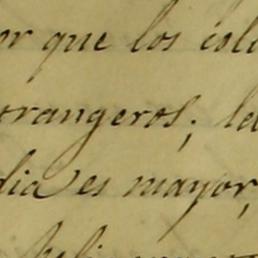 or que los col
orangeros; le
dia es mayor,